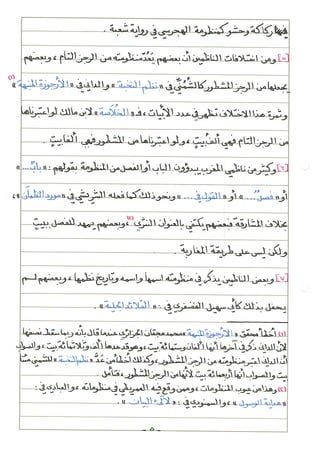 فيها ركاكة وحشو كمنظومة الهجرسي في رواية شعبة .
[٥] ومن اختلافات الناظمين أن بعضهم يَعُدّ منظومته من الرجز التام ، وبعضهم
يجعلها من الرجز المشطور كالشُّمُنِّي في « نظم النخبة » والداني في « الأرجوزة المنبهة » (١)
وثمرة هذا الاختلاف تظهر في عدد الأبيات ، فـ « الخُلَاصة » لابن مالك لو اعتبرناها
من الرجز التام فهي ألفُ بيتٍ ، ولو اعتبرناها من المشطور فهي ألفَا بيتٍ .
[٦] وكثير من ناظمي المغرب يبدؤون الباب أو الفصل من المنظومة بقولهم : « بابُ ... »
أو « فصلٌ ... » أو « القول في ... » وبنحو ذلك كما فعله الشريشي في « مورد الظمآن » ،
بخلاف المشارقة فبعضهم يكتفي بالعنوان النثري (٢) ، وبعضهم يمهد للفصل ببيت
ولكن ليس على طريقة المغاربة .
[٧] وبعض الناظمين يذكر في منظومته اسمها واسمه وتاريخ نظمها ، وبعضهم لم
يحفل بذلك كأبي سهيل الغضفري في : « القلائد الجلية »
(١) أخطأ محقق « الأرجوزة المنبهة » محمد مجقان الجزائري عندما قال بأنه ربما سقط نصفها
لأن الداني ذكر في آخرها أنها ألفان وستمائة بيت ، وهو قد عدها ألف وثلاثمائة بيت ، والصواب
أن الداني اعتبر منظومته من الرجز المشطور ، وكذلك أخطأ من عدَّ « نظم النخبة » للشمني مئتا
بيت والصواب أنها أربعمائة بيت لأنها من الرجز المشطور ، فتأمل .
(٢) وهذا من عيوب المنظومات ، وممن وقع فيه العمريطي في منظوماته ، والبادي في :
« هداية الوصول » ، والسمنودي في : « لآلئ البيان » .
- ٥ -